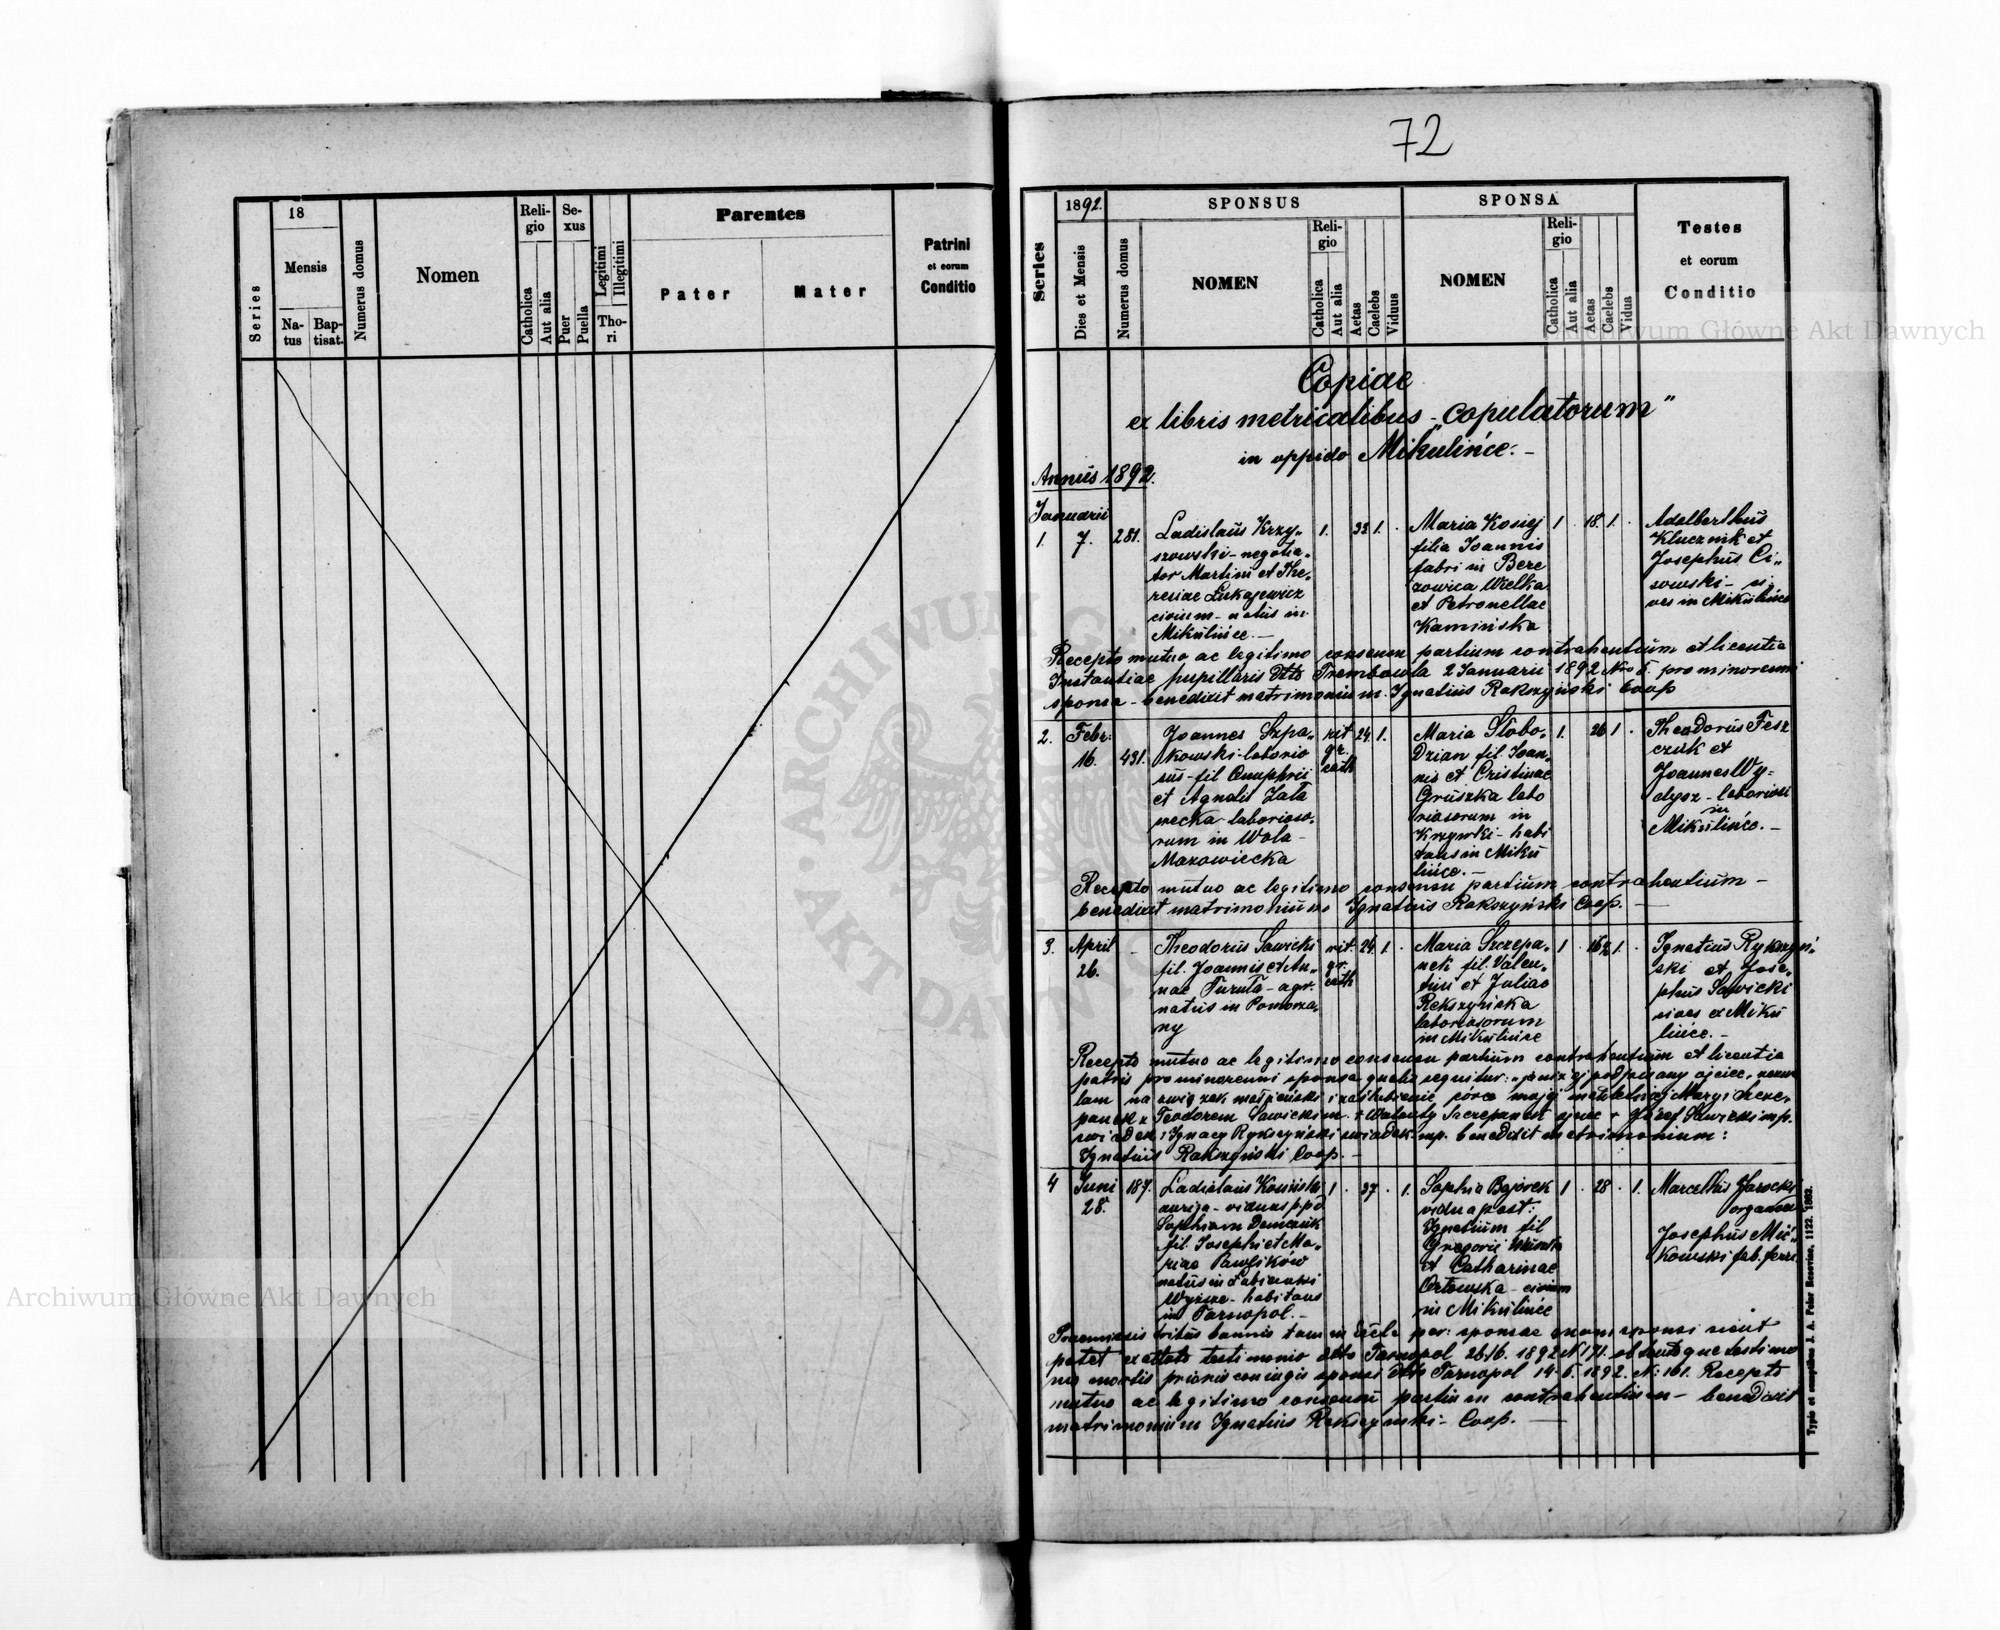 72
Series
18
Mensis
Na-
tus
Bap-
tisat.
Numerus domus
Nomen
Reli-
gio
Catholica
Aut alia
Se-
xus
Puer
Puella
Legitimi
Illegitimi
Tho-
ri
Parentes
Pater
Mater
Patrini
et eorum
Conditio
Series
1892.
Dies et Mensis
Numerus domus
SPONSUS
NOMEN
Reli-
gio
Catholica
Aut alia
Aetas
Caelebs
Viduus
SPONSA
NOMEN
Reli-
gio
Catholica
Aut alia
Aetas
Caelebs
Vidua
Testes
et eorum
Conditio
Copiae
ex libris metricalibus „copulatorum"
in oppido Mikulińce. –
Annus 1892.
Januarii
1. 7. 281.
Ladislaus Krzy„
szowski – negotia„
tor Martini et The„
resiae Łukajewicz
civium – natus in
Mikulińce. –
1. 33 1.
Maria Kosiej
filia Joannis
fabri in Bere
zowica Wielka
et Petronellae
Kamińska
1 18. 1.
Adalberthus
Klucznik et
Josephus Ci„
sowski – ci„
ves in Mikulińce
Recepto mutuo ac legitimo consensu partium contrahentium et licentia
Instantiae pupillaris dtto Trembowla 2 Januarii 1892 Nro 5. pro minorenni
sponsa – benedixit matrimonium. Ignatius Rakszyński Coop
2. Febr.
16. 431.
Joannes Szpa„
kowski – laborio
sus – fil Onuphrii
et Agnetis Zata
recka laborioso„
rum in Wola –
Mazowiecka
rit
gr.
cath
24. 1.
Maria Słobo„
dzian fil. Joan„
nis et Cristinae
Gruszka labo
riosorum in
Krzywki – habi
tans in Miku
lińce. –
1. 26 1
Theodorus Fesz
czuk et
Joannes Wy„
dysz – laboriosi
in
Mikulińce. –
Recepto mutuo ac legitimo consensu partium contrahentium –
benedixit matrimonium Ignatius Rakszyński Coop. –
3. April
26. –
Theodorus Sawicki
fil. Joannis et An„
nae Furuta – agr.
natus in Pomorza„
ny
rit.
gr.
cath
24. 1.
Maria Szczepa„
nek fil. Valen„
tini et Juliae
Rekszyńska
laboriosorum
in Mikulińce
1 16½ 1.
Ignatius Rykszyń„
ski et Jose„
phus Sawicki
cives ex Miku
lińce. –
Recepto mutuo ac legitimo consensu partium contrahentium et licentia
patris pro minorenni sponsa quale sequitur: „poniżej podpisany ojciec, zezwa
lam na związek małżeński i zaślubienie córce mojej małoletniej Maryi Szcze„
panek z Teodorem Sawickim. + Walenty Szczepanek ojciec + Józef Sawicki mp.
świadek; Ignacy Rykszyński świadek mp. benedixit matrimonium:
Ignatius Rakszyński Coop. –
4 Juni
28. 187.
Ladislaus Kosiński
auriga – viduus ppo
Sophiam Demczuk
fil. Josephi et Ma„
riae Pawlików
natus in
Wyższe – habitans
in Tarnopol. –
1 37 1.
Sophia Bejorek
vidua post:
Ignatium fil
Gregorii
et Catharinae
Orłowska – civium
in Mikulińce
1 28 1.
Marcellus Jarocki
organar
Josephus Mić„
kowski fab. ferr.
Praemissis tribus bannis tam in Eccle par: sponsae quam sponsi sicut
patet ex testimonio dtto Tarnopol 26./6. 1892 N 171. testimo
nio mortis prioris coniugis sponsi dtto Tarnopol 14. 6. 1892. N: 161. Recepto
mutuo ac legitimo consensu partium contrahentium – benedixit
matrimonium Ignatius Rakszynski – Coop. –
Typis et sumptibus J. A. Pelar Resoviae. 1122. 1892.
ARCHIWUM GŁ
AKT DAWNYC
Archiwum Główne Akt Dawnych
Archiwum Główne Akt Dawnych